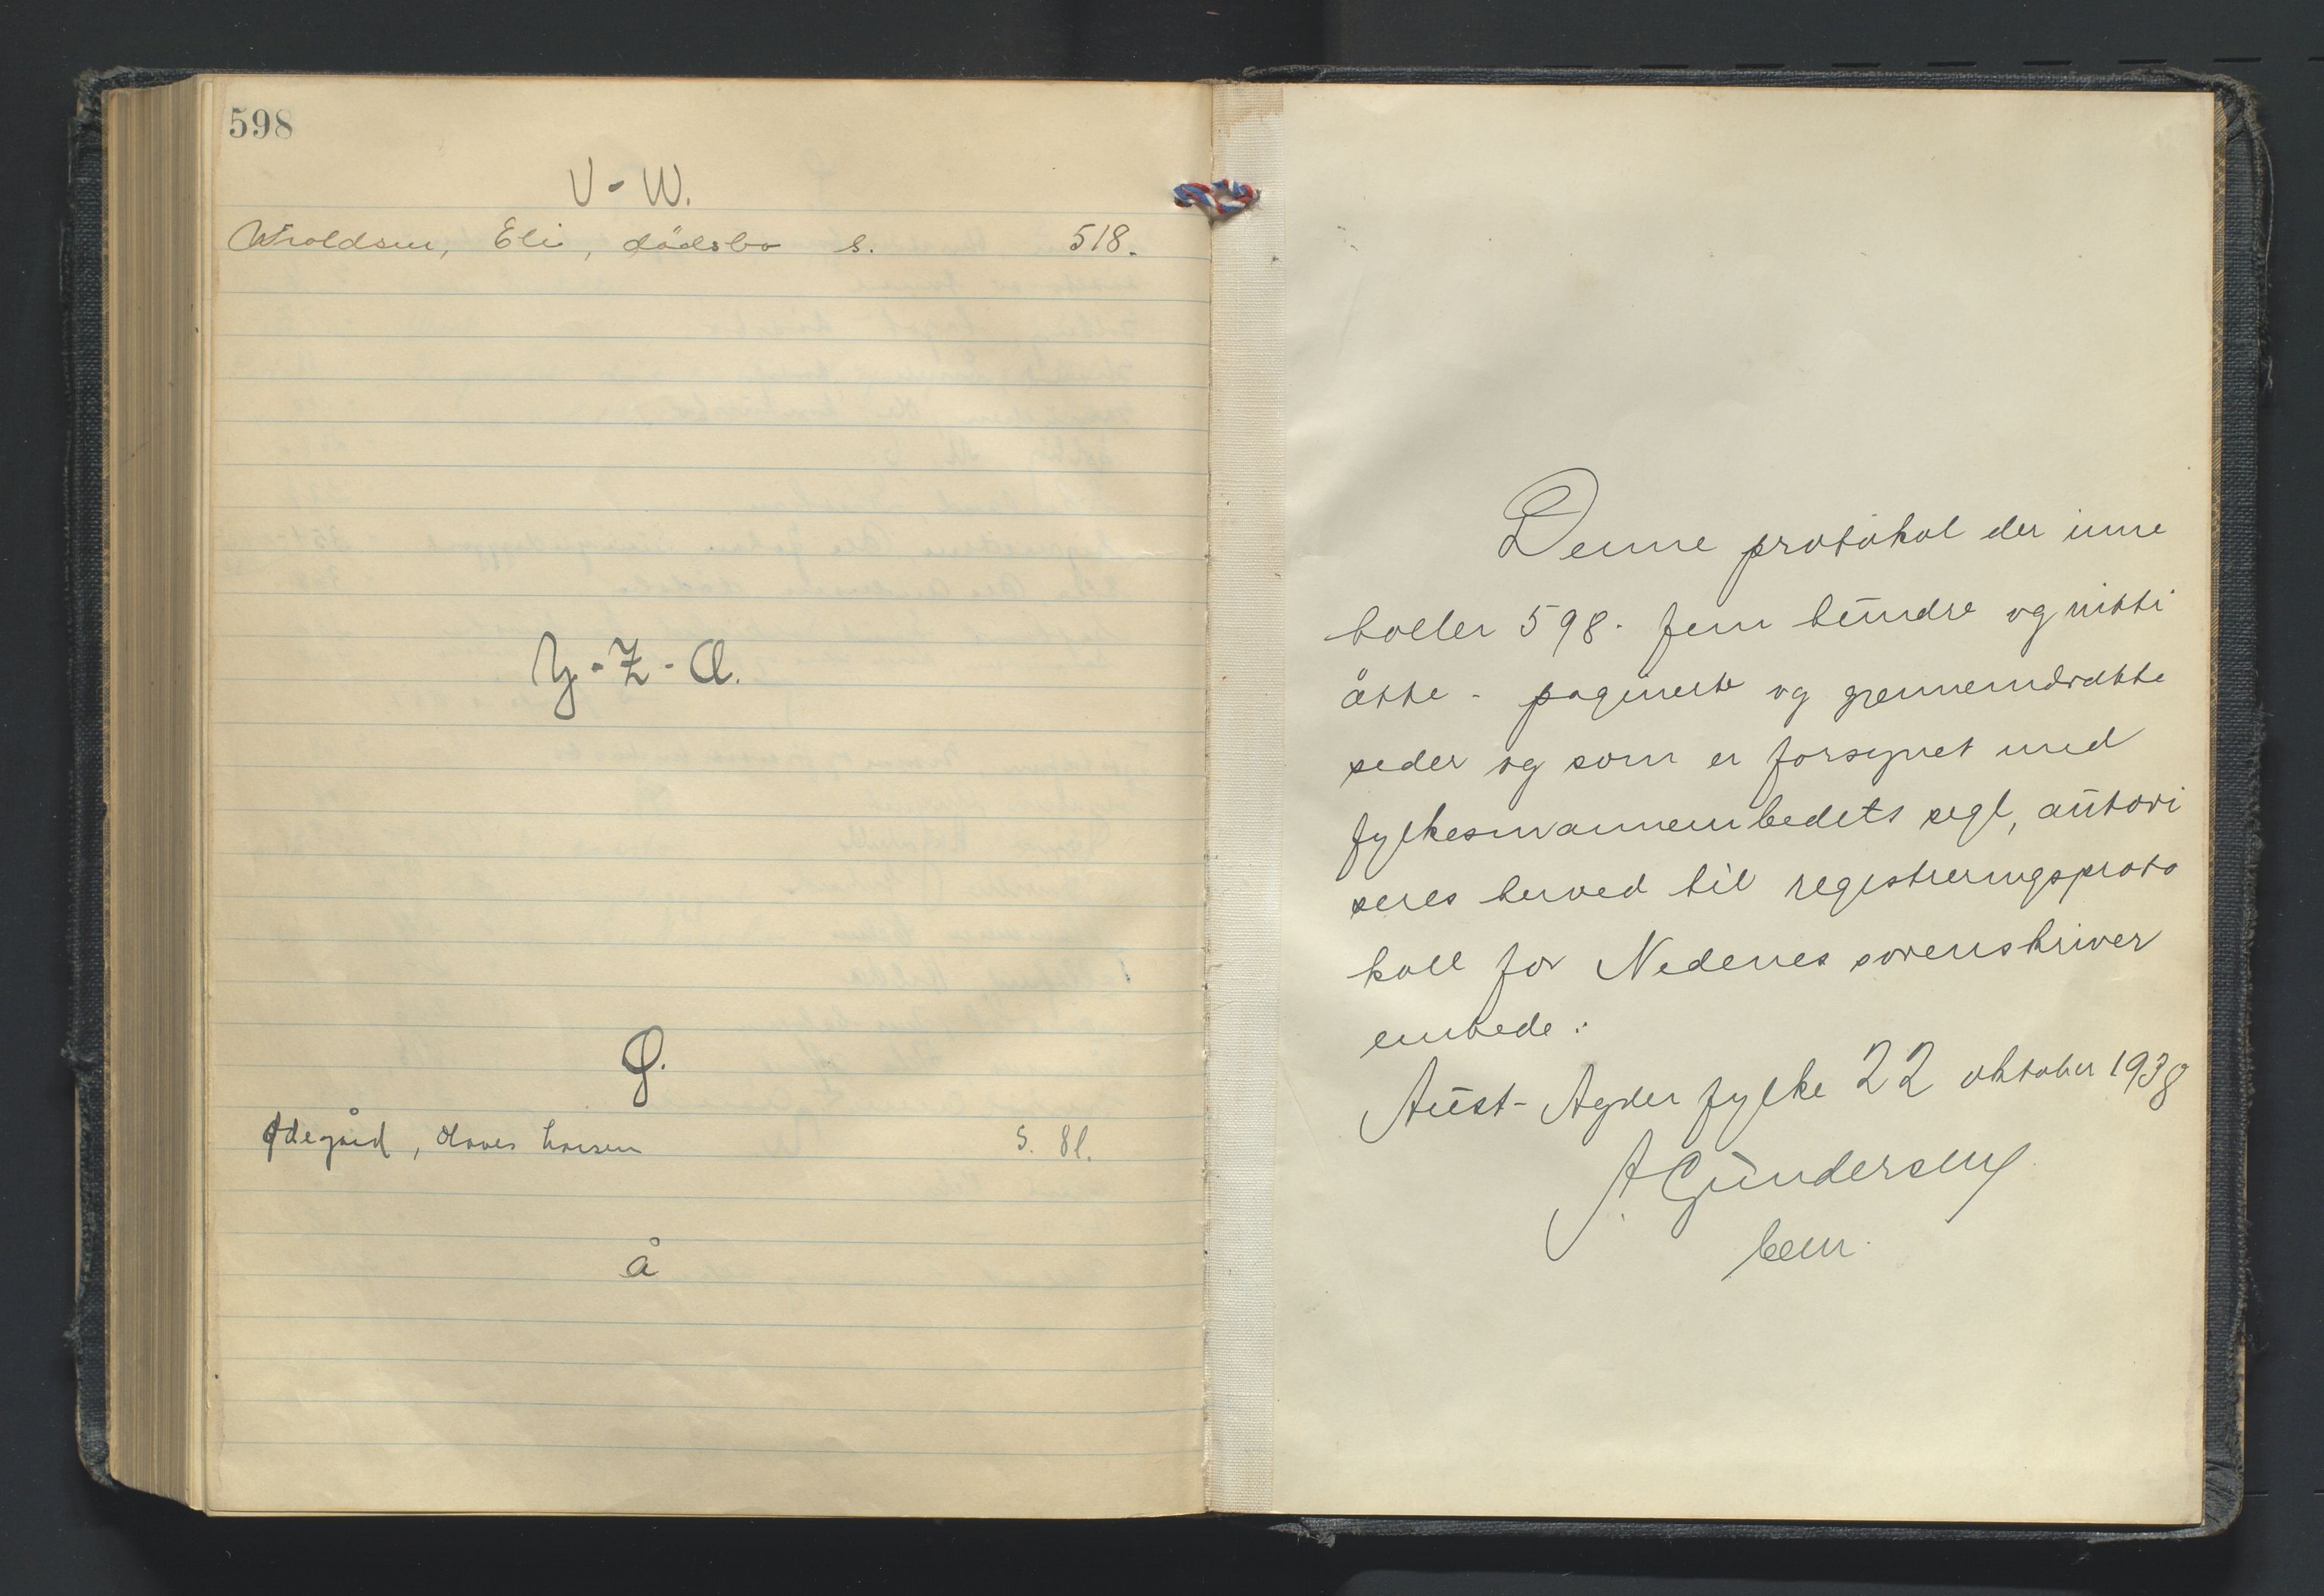 598
V - W.
Wroldsen, Eli, dödsbo s. 518.
Y - Z - Æ.
Ø.
Ødegård, Olaves Larsen s. 81.
å
Denne protokol der inne
holler 598 - fem hundre og nitti
åtte - paginerte og gjennemdratte
seder og som er forsynet med
fylkesmannembedets segl, autori
seres herved til registreringsproto
koll for Nedenes sorenskriver
embede.
Aust-Agder fylke 22 oktober 1938
A Gundersen
bem.